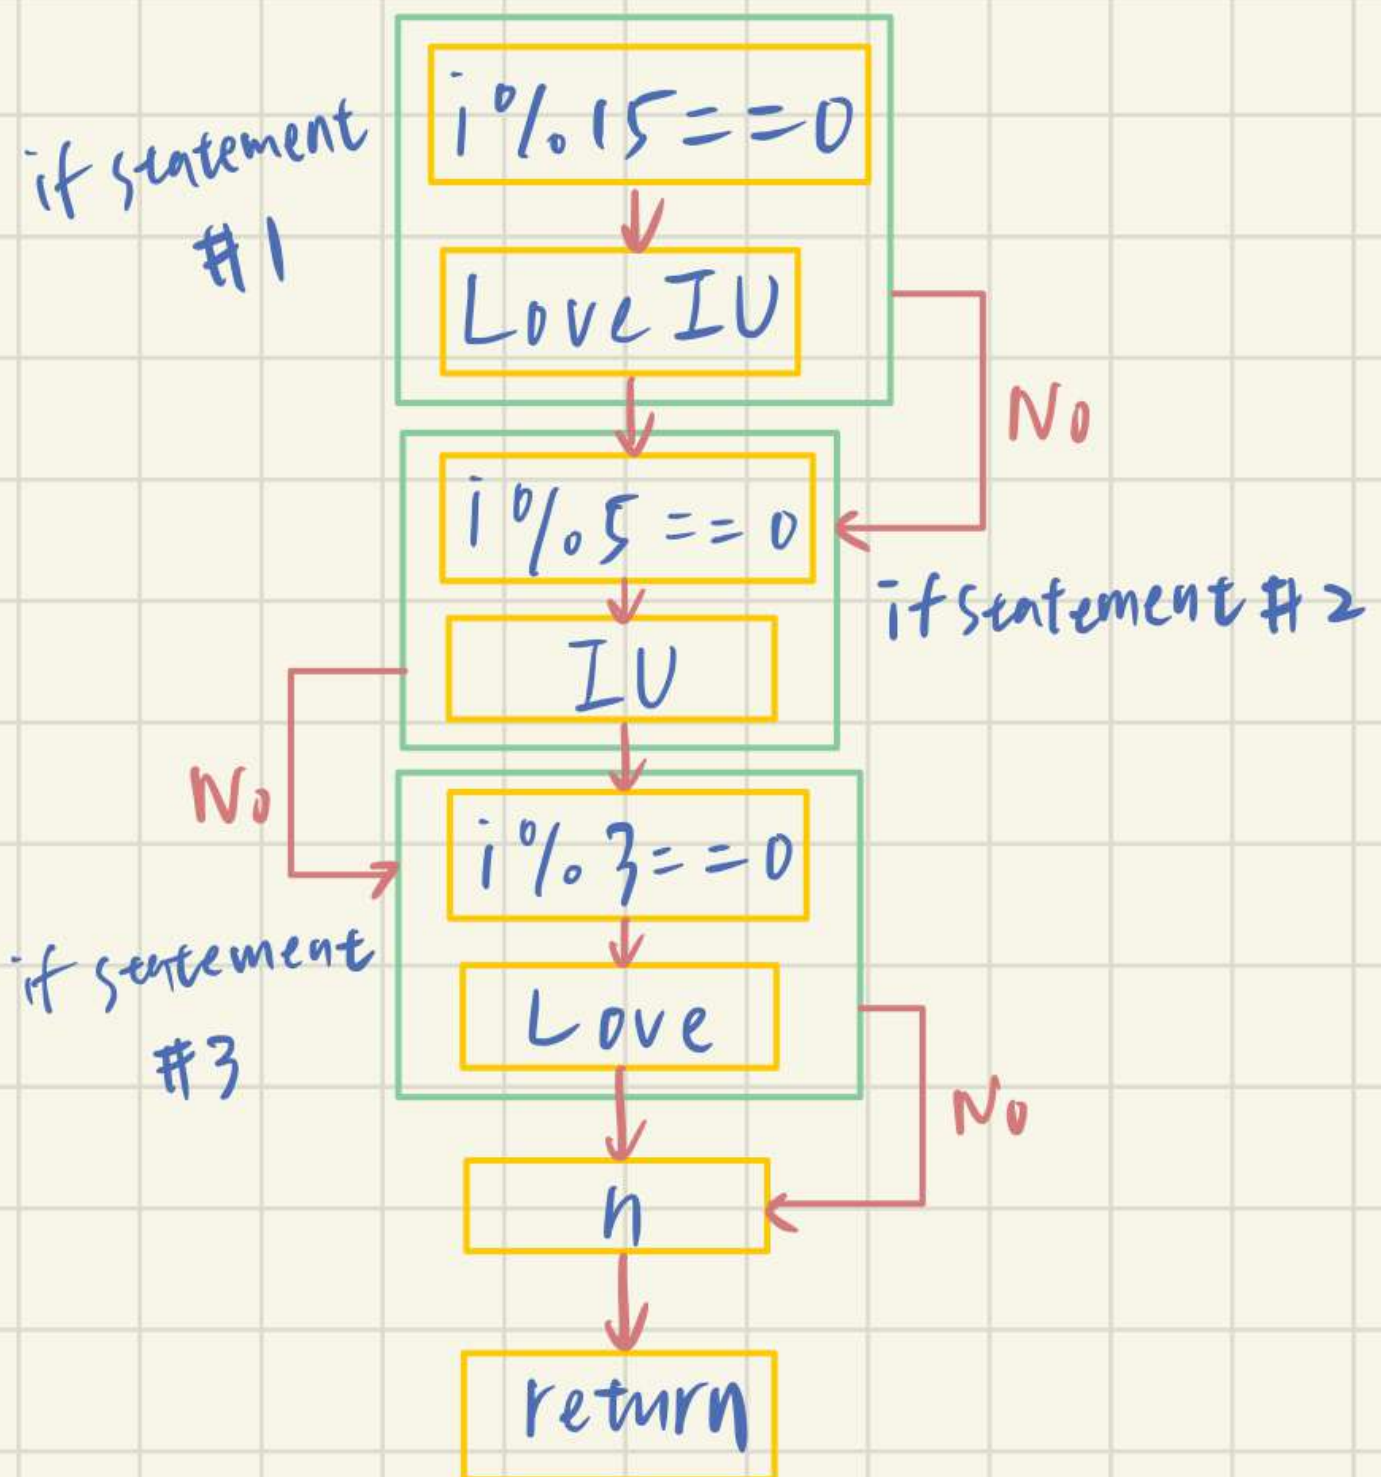 i%15==0
if statement
#1
Love IU
No
i%5==0
if statement #2
IU
No
i%3==0
if statement
#3
Love
No
n
return